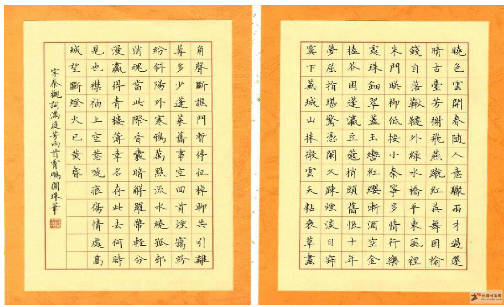 曉色雲開春隨人意驟雨才過還
晴古臺芳榭飛燕蹴紅英舞困榆
錢自落鞦韆外綠水橋平東風裡
朱門映柳低按小秦箏多情行樂
處珠鈿翠蓋玉轡紅纓漸酒空金
榼花困蓬瀛豆蔻梢頭舊恨十年
夢屈指堪驚憑闌久疏煙淡日寂
寞下蕪城山抹微雲天粘衰草畫
角聲斷譙門暫停征棹聊共引離
尊多少蓬萊舊事空回首煙靄紛
紛斜陽外寒鴉萬點流水繞孤邨
銷魂當此際香囊暗解羅帶輕分
謾贏得青樓薄幸名存此去何時
見也襟袖上空惹啼痕傷情處高
城望斷燈火已黃昏
宋秦觀詞滿庭芳兩首